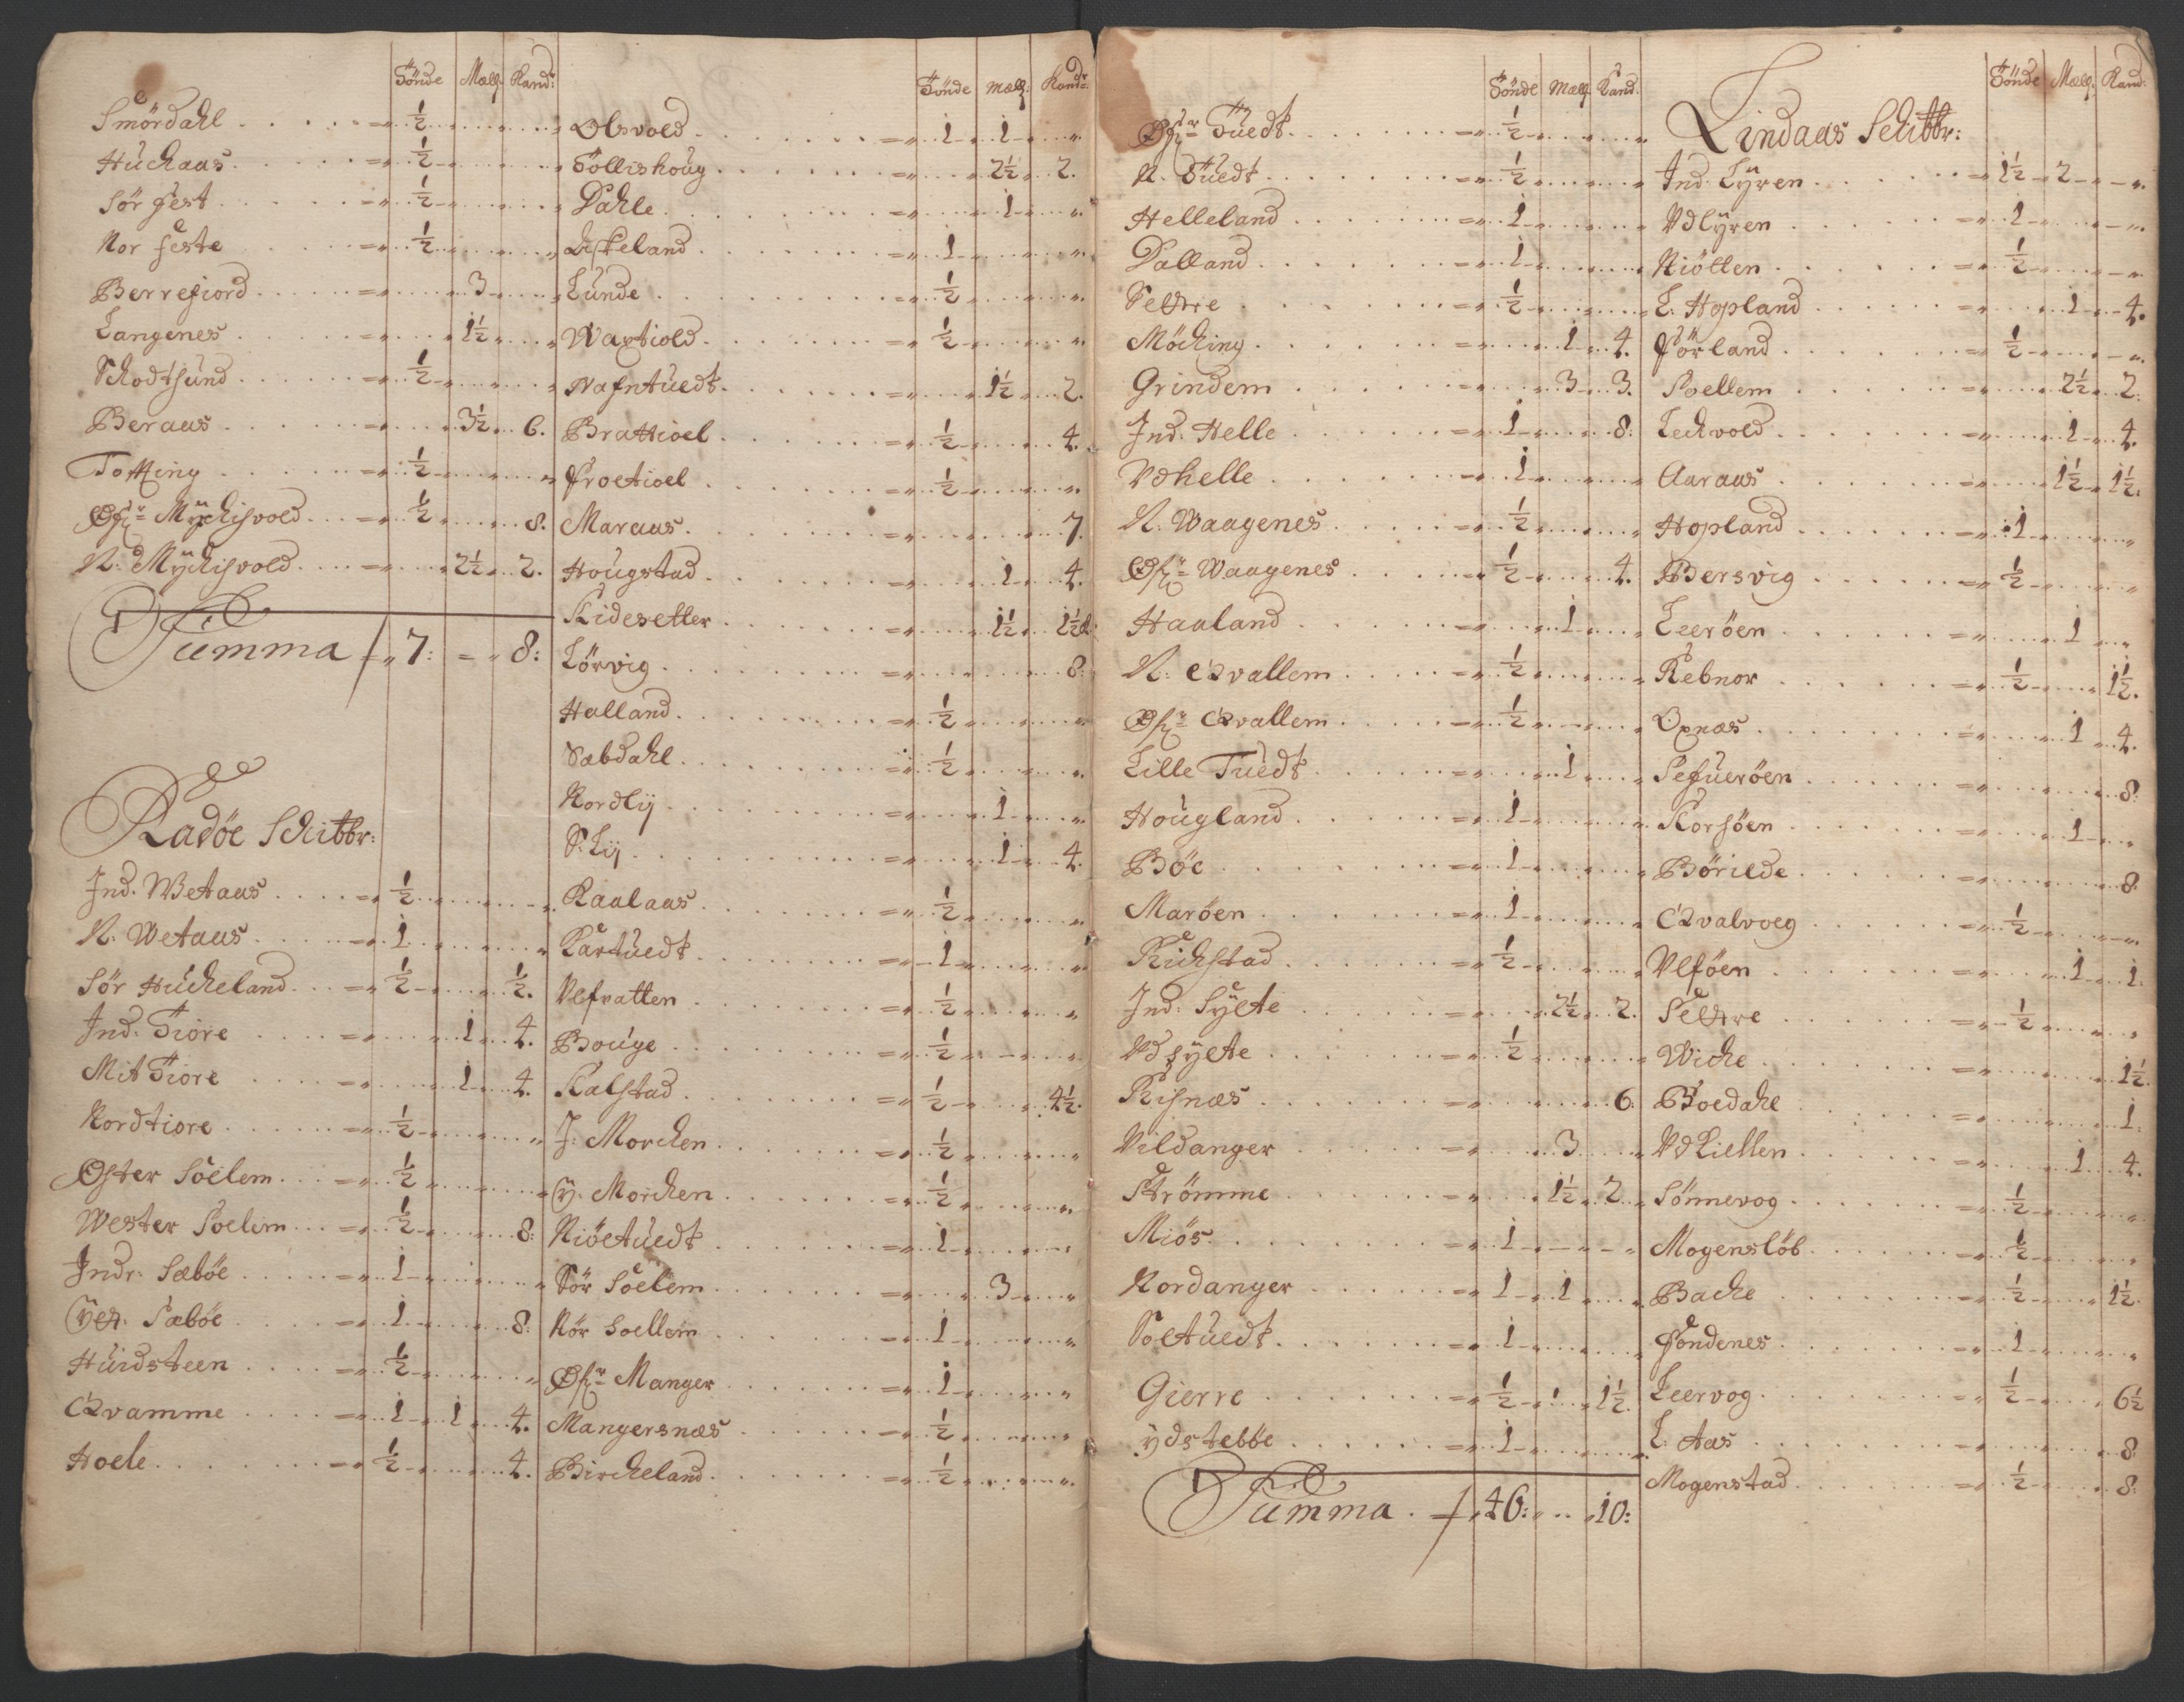 Tönde Mæll: Kand:
Smördahl ½
Huchaas ½
Sör fest ½
Nor feste ½
Berrefiord 3
Langenes 1½
Schodtsund ½
Beraas 3½ 6.
Totting ½
Øfr Myckisvold ½ 8.
N: Myckisvold 2½ 2.
Summa 7: 8:
Radöe Schibbr:
Ind. Wetaas ½
N. Wetaas 1
Sör Huckeland ½ ½.
Ind. Tiore 1 4.
Mit Tiore 1 4.
Nordtiore ½
Øster Soelem ½
Wester Soelem ½ 8:
Indr: Sæböe 1
Yttr: Sæböe 1 8:
Huidsteen ½
Qvamme 1 1 4.
Hoele ½ 4.
Tönde Mæll: Kand:
Olsvold 1 1
Töllishoug 2½ 2.
Dahle 1
Eskeland 1
Lunde ½
Waxtiold ½
Nafntuedt 1½ 2.
Brattioel ½ 4.
Froetioel ½
Maraas 7.
Hougstad 1 4.
Kidesetter 1½ 1½
Lörvig 8:
Halland ½
Sæbdahl ½
Nordlij 1
S: Lij 1 4.
Raalaas ½
Kartuedt 1
Ulfvatten ½
Bouge ½
Kalstad ½ 4½.
J: Morchen ½
Y: Morchen ½
Niöetuedt 1
Sör Soelem 3
Nör Soellem 1
Øfr Manger 1
Mangersnæs ½
Birckeland ½
Tönde Mæll Kand:
Øfr Tuedt ½
N. Tuedt ½
Helleland 1
Dalland 1
Seltre ½
Möcking 1 4.
Grindem 3 3.
Ind. Helle 1 8:
Vdhelle 1
N. Waagenes ½
Øfr Waagenes ½ 4.
Haaland 1
N: Qvallem ½
Øfr Qvallem ½
Lille Tuedt 1
Hougland 1
Böe 1
Maröen 1
Rickstad ½
Ind: Sylte 2½ 2.
Vdsylte ½
Risnæs 6:
Vildanger 3
Strömme 1½ 2
Miös 1
Nordanger 1 1
Soltuedt 1
Gierre ½ 1½.
Ydsteböe 1
Summa 46: 10:
Tönde Mæll: Kand:
Lindaas Schibbr:
Ind Lÿren 1½ 2
Vdlÿren 1
Niötten ½
L. Hopland 1 4.
Förland ½
Soellem 2½ 2:
Leckvold 1 4.
Aaraas 1½ 1½:
Hopland 1
Bersvig ½
Leeröen 1
Kebnor ½ 1½.
Oxnæs 1 4.
Sefueröen 8:
Korsöen 1
Börilde 8:
Qvalvoeg ½
Ulföen 1 1:
Seltre ½
Wicke 1½.
Boedahl 1:
Vdkiellen 1 4.
Sönnevog ½
Mogenslöb ½
Backe ½ 1½.
Fondenes 1
Leervog ½ 6½
L: Aas 8:
Mogenstad ½ 8: